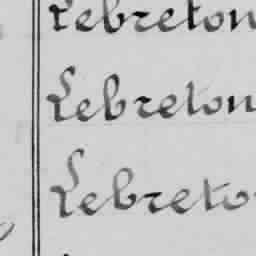 Lebreton
Lebreton
Lebreto